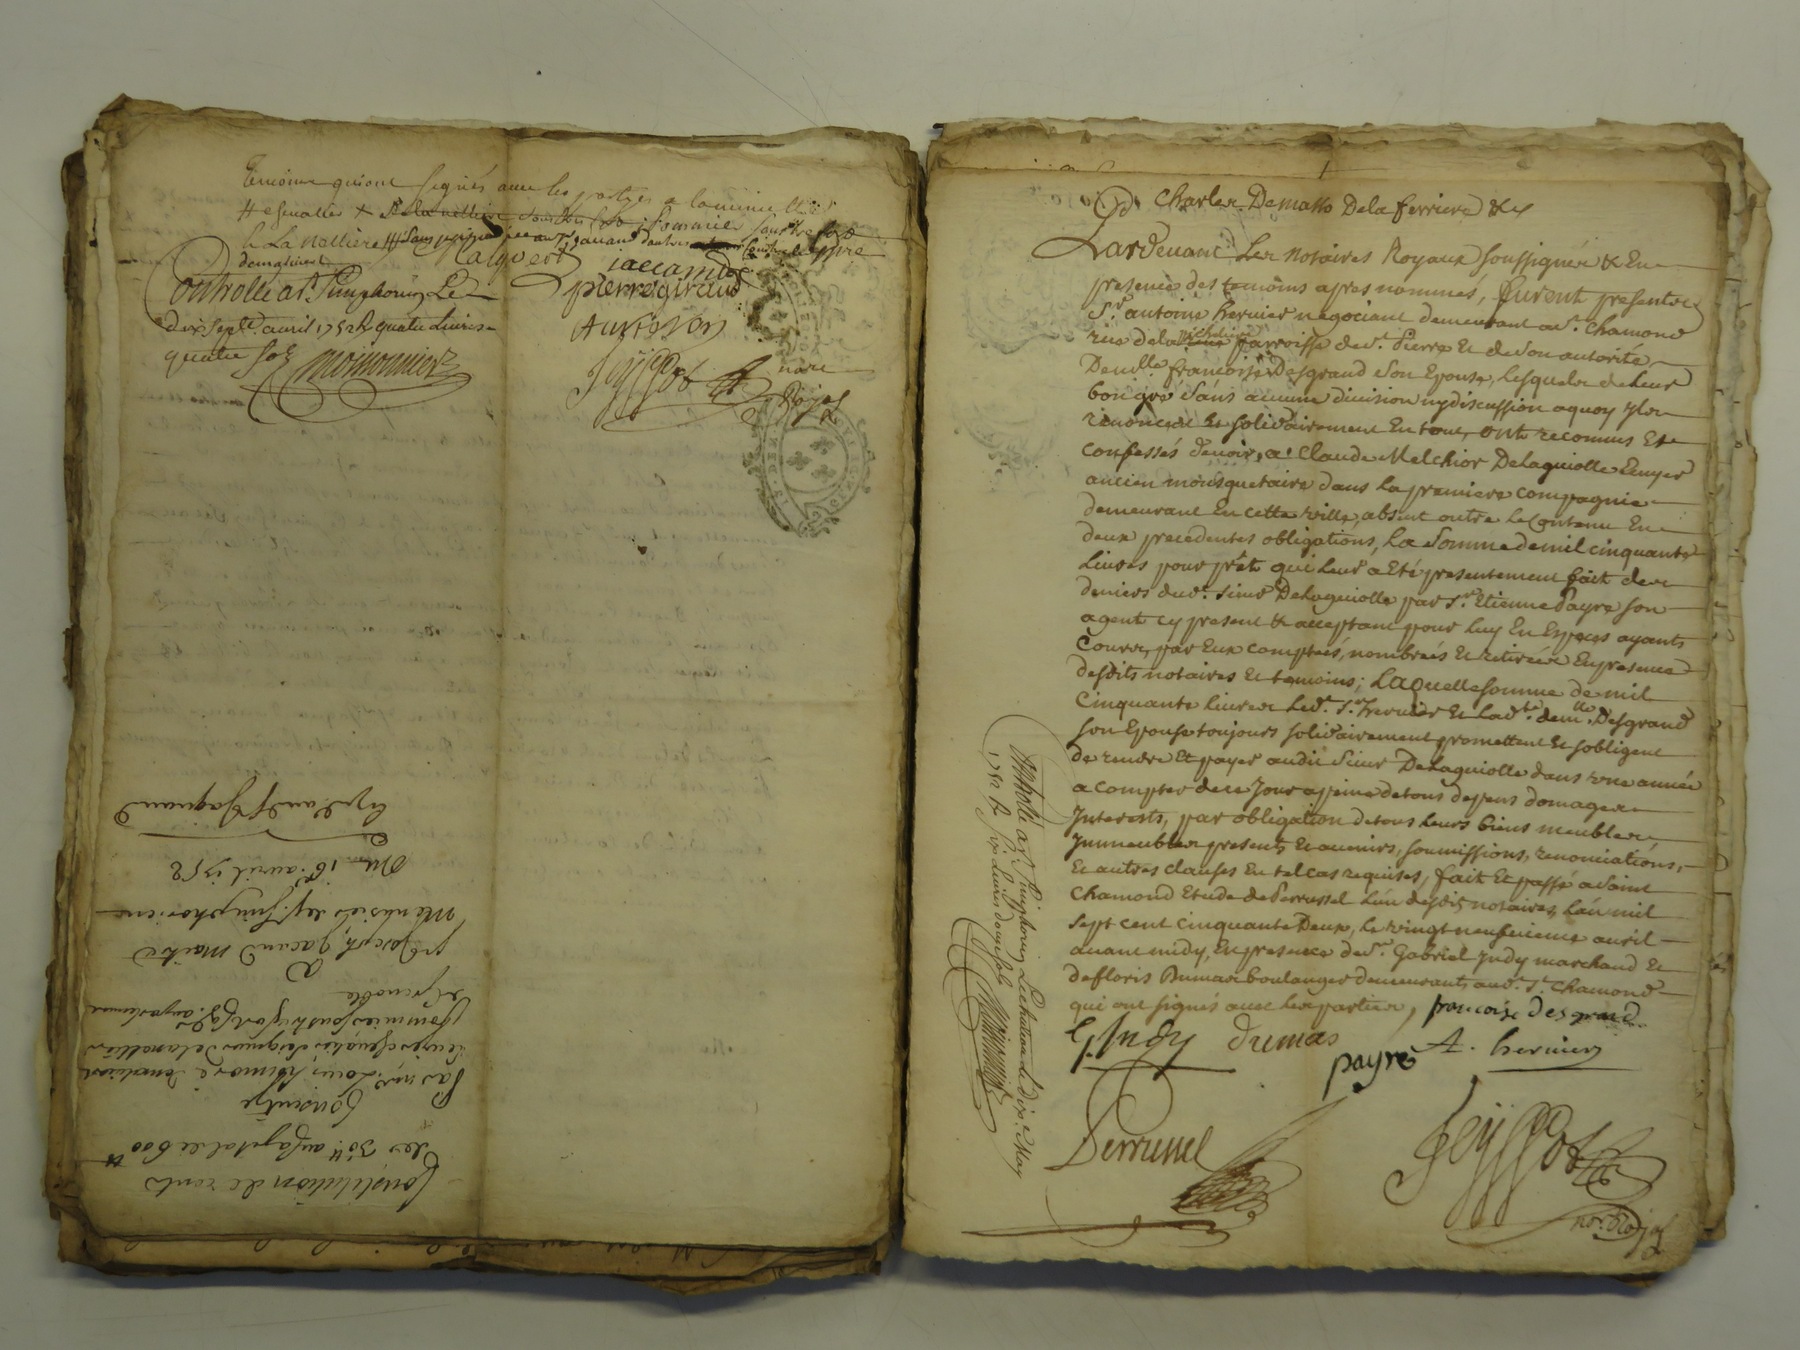 temoins qui ont signés avec les parties a la minutte
pierre giraud
Controllé a St. Simphorien Le
dix sept avril 1752 R quatre livres
quatre sols
Seyssot
nore
Royal
Constitution de rente
de 30tt au capital de 600tt
Consentye
Par
et grenoble
A
Sr Joseph Jacand maitre
Menusier de St. Simphorien
Du 16e. avril 1752
Exp. aud. Sr Jaquand
Charles Demasso Dela ferriere &c
Pardevant Les Notaires Royaux soussignés & En
presence des temoins apres nommés, furent presents
Sr. antoine hervier negociant demeurant a St. Chamond
rue de la parroisse de St. Pierre Et de Son autorité
Demlle françoise Desgrand Son Epouse, Lesquels de Leur
bon gré Sans aucune division ny discussion a quoy ils
renoncent Et solidairement En tout, ont reconnus Et
confessés devoir, a Claude Melchior Delaguiolle Ecuyer
ancien mousquetaire dans la premiere compagnie
demeurant En cette ville, absent outre le Contenu En
deux precedentes obligations, La Somme de mil cinquante
Livres pour prêt qui Leur a Eté presentement fait des
deniers dud. Sieur Delaguiolle par Sr. Etienne Payre son
agent cy present & acceptant pour luy En Especes ayants
Cours, par Eux comptées, nombrées Et retirées En presence
desdits notaires Et temoins; Laquelle somme de mil
Cinquante livres Led. Sr. hervier Et Lad.te demlle. Desgrand
son Epouse toujours solidairement promettent Et sobligent
de rendre Et payer audit Sieur Delaguiolle dans une année
a compter de ce Jour a peine de tous depens domages
Interests, par obligation de tous Leurs biens meubles
Immeubles presents Et avenirs, soumissions, renonciations,
Et autres clauses En tel cas requises, fait Et passé a Saint
Chamond Etude de Perrussel L'un desdits notaires, L'an mil
sept cent cinquante Deux, Le vingt neufvieme avril
avant midy, En presence de Sr. Gabriel Indy marchand Et
de floris Dumas boulanger demeurants aud. St. Chamond
qui ont signés avec les parties, francoise desgrand
G. Indy dumas
payre A. hervier
Perrussel
Seyssot
nore. Royal
Controllé a St. Simphorien Le chateau Le dixe. May
1752 R Six Livres douze sols